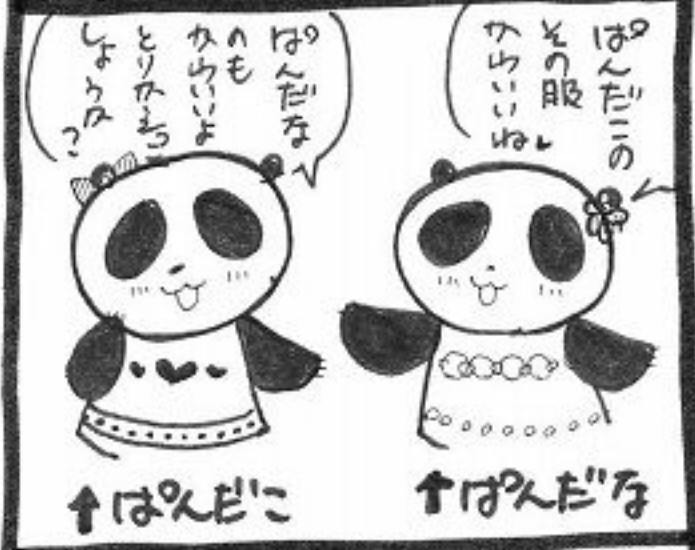 ぱんだこの
その服
かわいいね
ぱんだな
のも
かわいいよ
とりかえっ
しょうか
？
↑ぱんだこ
↑ぱんだな